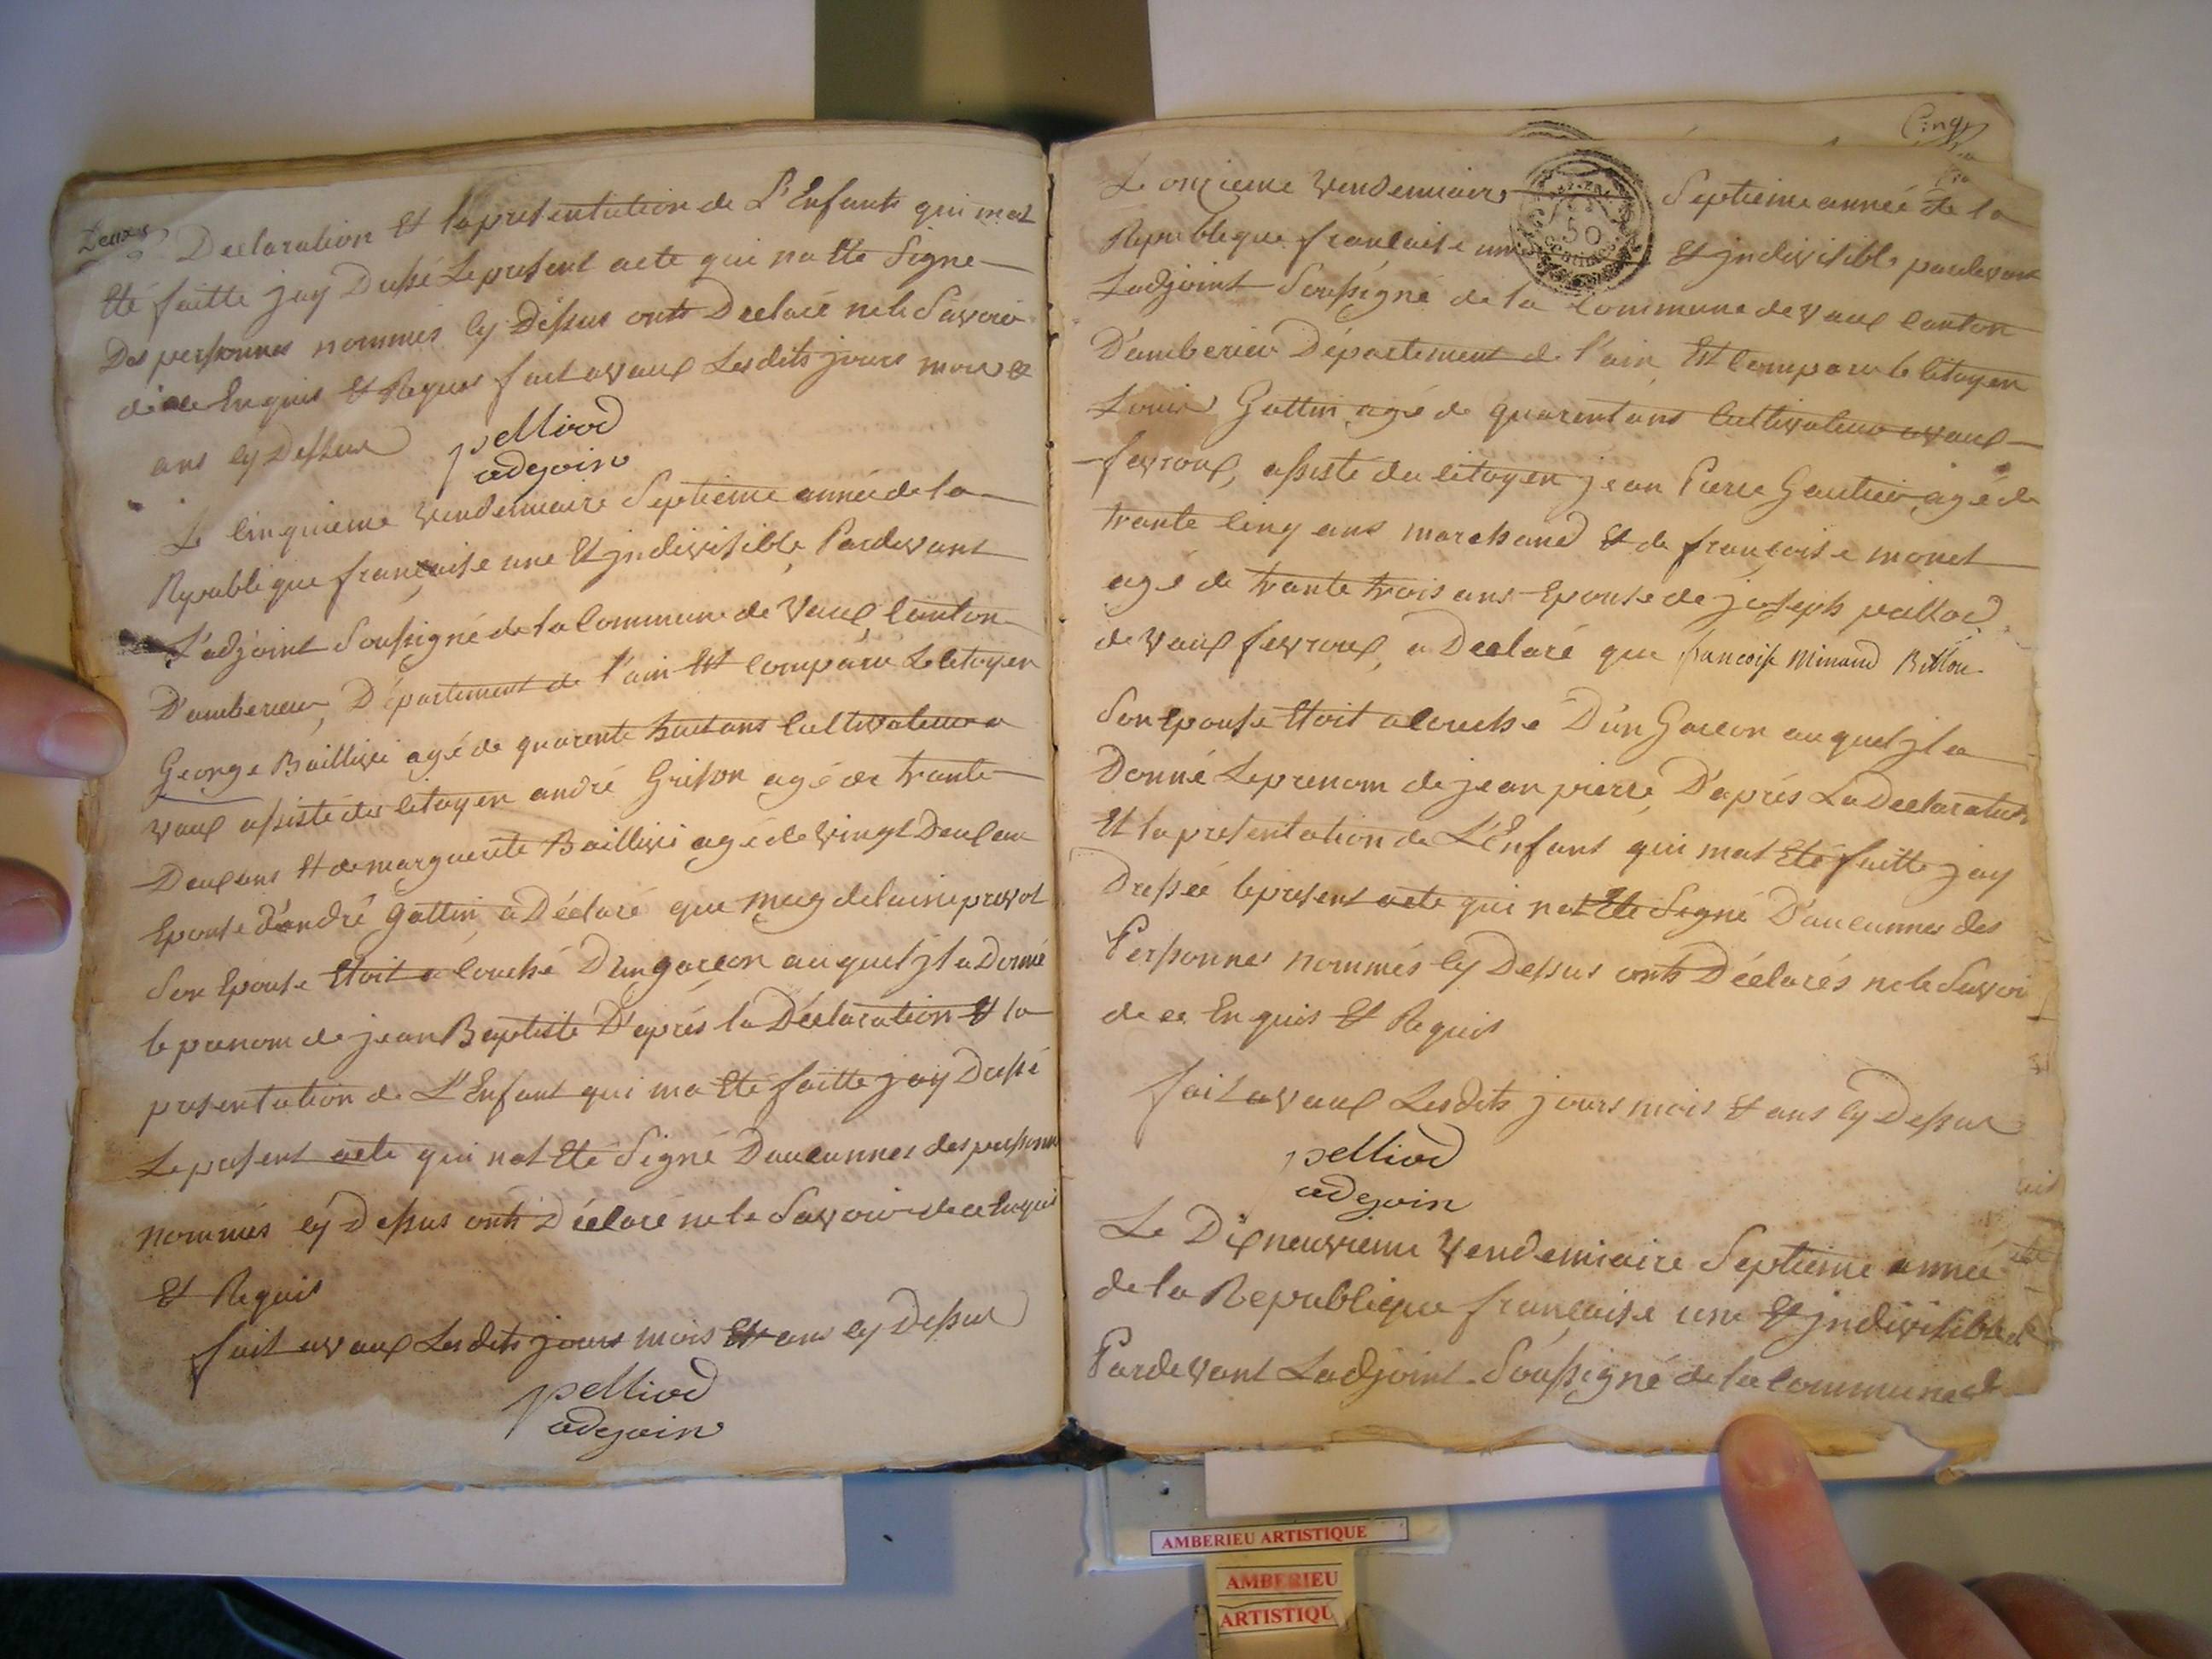 Deux
Declaration Et la presentation de L'Enfants qui mat
Eté faitte jay Dressé Le present acte qui na Eté Signe
Des personnes nommés cy Dessus onts Declaré ne le Savoir
de ce Enquis Et Requis fait a Vaux Lesdits jours mois &
ans cy Dessus
pelliod
adejoin
Le Cinquieme Vendemiaire Septieme année de la
Republique française une Et jndivisible, Pardevant
L'adjoint Soussigné de la Commune de Vaux Canton
D'amberieu, Département de l'ain Est comparu Le Citoyen
George Baillivi agé de quarente huit ans Cultivateur a
Vaux assisté du Citoyen andré Grison agé de trante
Deux ans Et de marguerite Baillivi agé de Vingt Deux an
Epouse d'andré Gottin, a Déclaré que magdelaine prevot
Son Epouse Etoit a Couché D'un garcon au quel jl a Donné
le prenom de jean Baptiste D'après la Déclaration Et la
presentation de L'Enfant qui ma Eté faitte jay Dressé
Le present acte qui nat Eté Signé Daucunnes des personn
nommés cy Dessus onts Déclaré ne le Savoir de ce Enquis
Et Requis
fait a Vaux Lesdits jours mois Et ans cy Dessus
pelliod
adejoin
Cinq
Le onzieme Vendemiaire Septieme année de la
50
Republique francaise une Et jndivisible pardevant
Ladjoint Soussigné de la Commune de Vaux Canton
D'amberieu Département de l'ain, Est Comparu le Citoyen
Louis Gottin agé de quarent ans Cultivateur a Vaux
fevroux, assisté du Citoyen jean Pierre Gautier agé de
trante Cinq ans marchand Et de françoise monet
agé de trante trois ans Epouse de joseph
de Vaux fevroux, a Declaré que francoise Minand Billon
Son Epouse Etoit a Couché D'un Garcon au quel jl a
Donné Le prenom de jean pierre, D'après La Declaration
Et la presentation de L'Enfant qui mat Eté faitte jay
Dressé le present acte qui nat Eté Signé D'aucunnes des
Personnes nommés cy Dessus onts Déclarés ne le Savoir
de ce Enquis Et Requis
fait a Vaux Lesdits jours mois Et ans cy Dessus
pelliod
adejoin
Le Dixneuvieme Vendemiaire Septieme année
de la Republique française une Et jndivisible
Pardevant Ladjoint Soussigné de la Commune de
AMBERIEU ARTISTIQUE
AMBERIEU
ARTISTIQU